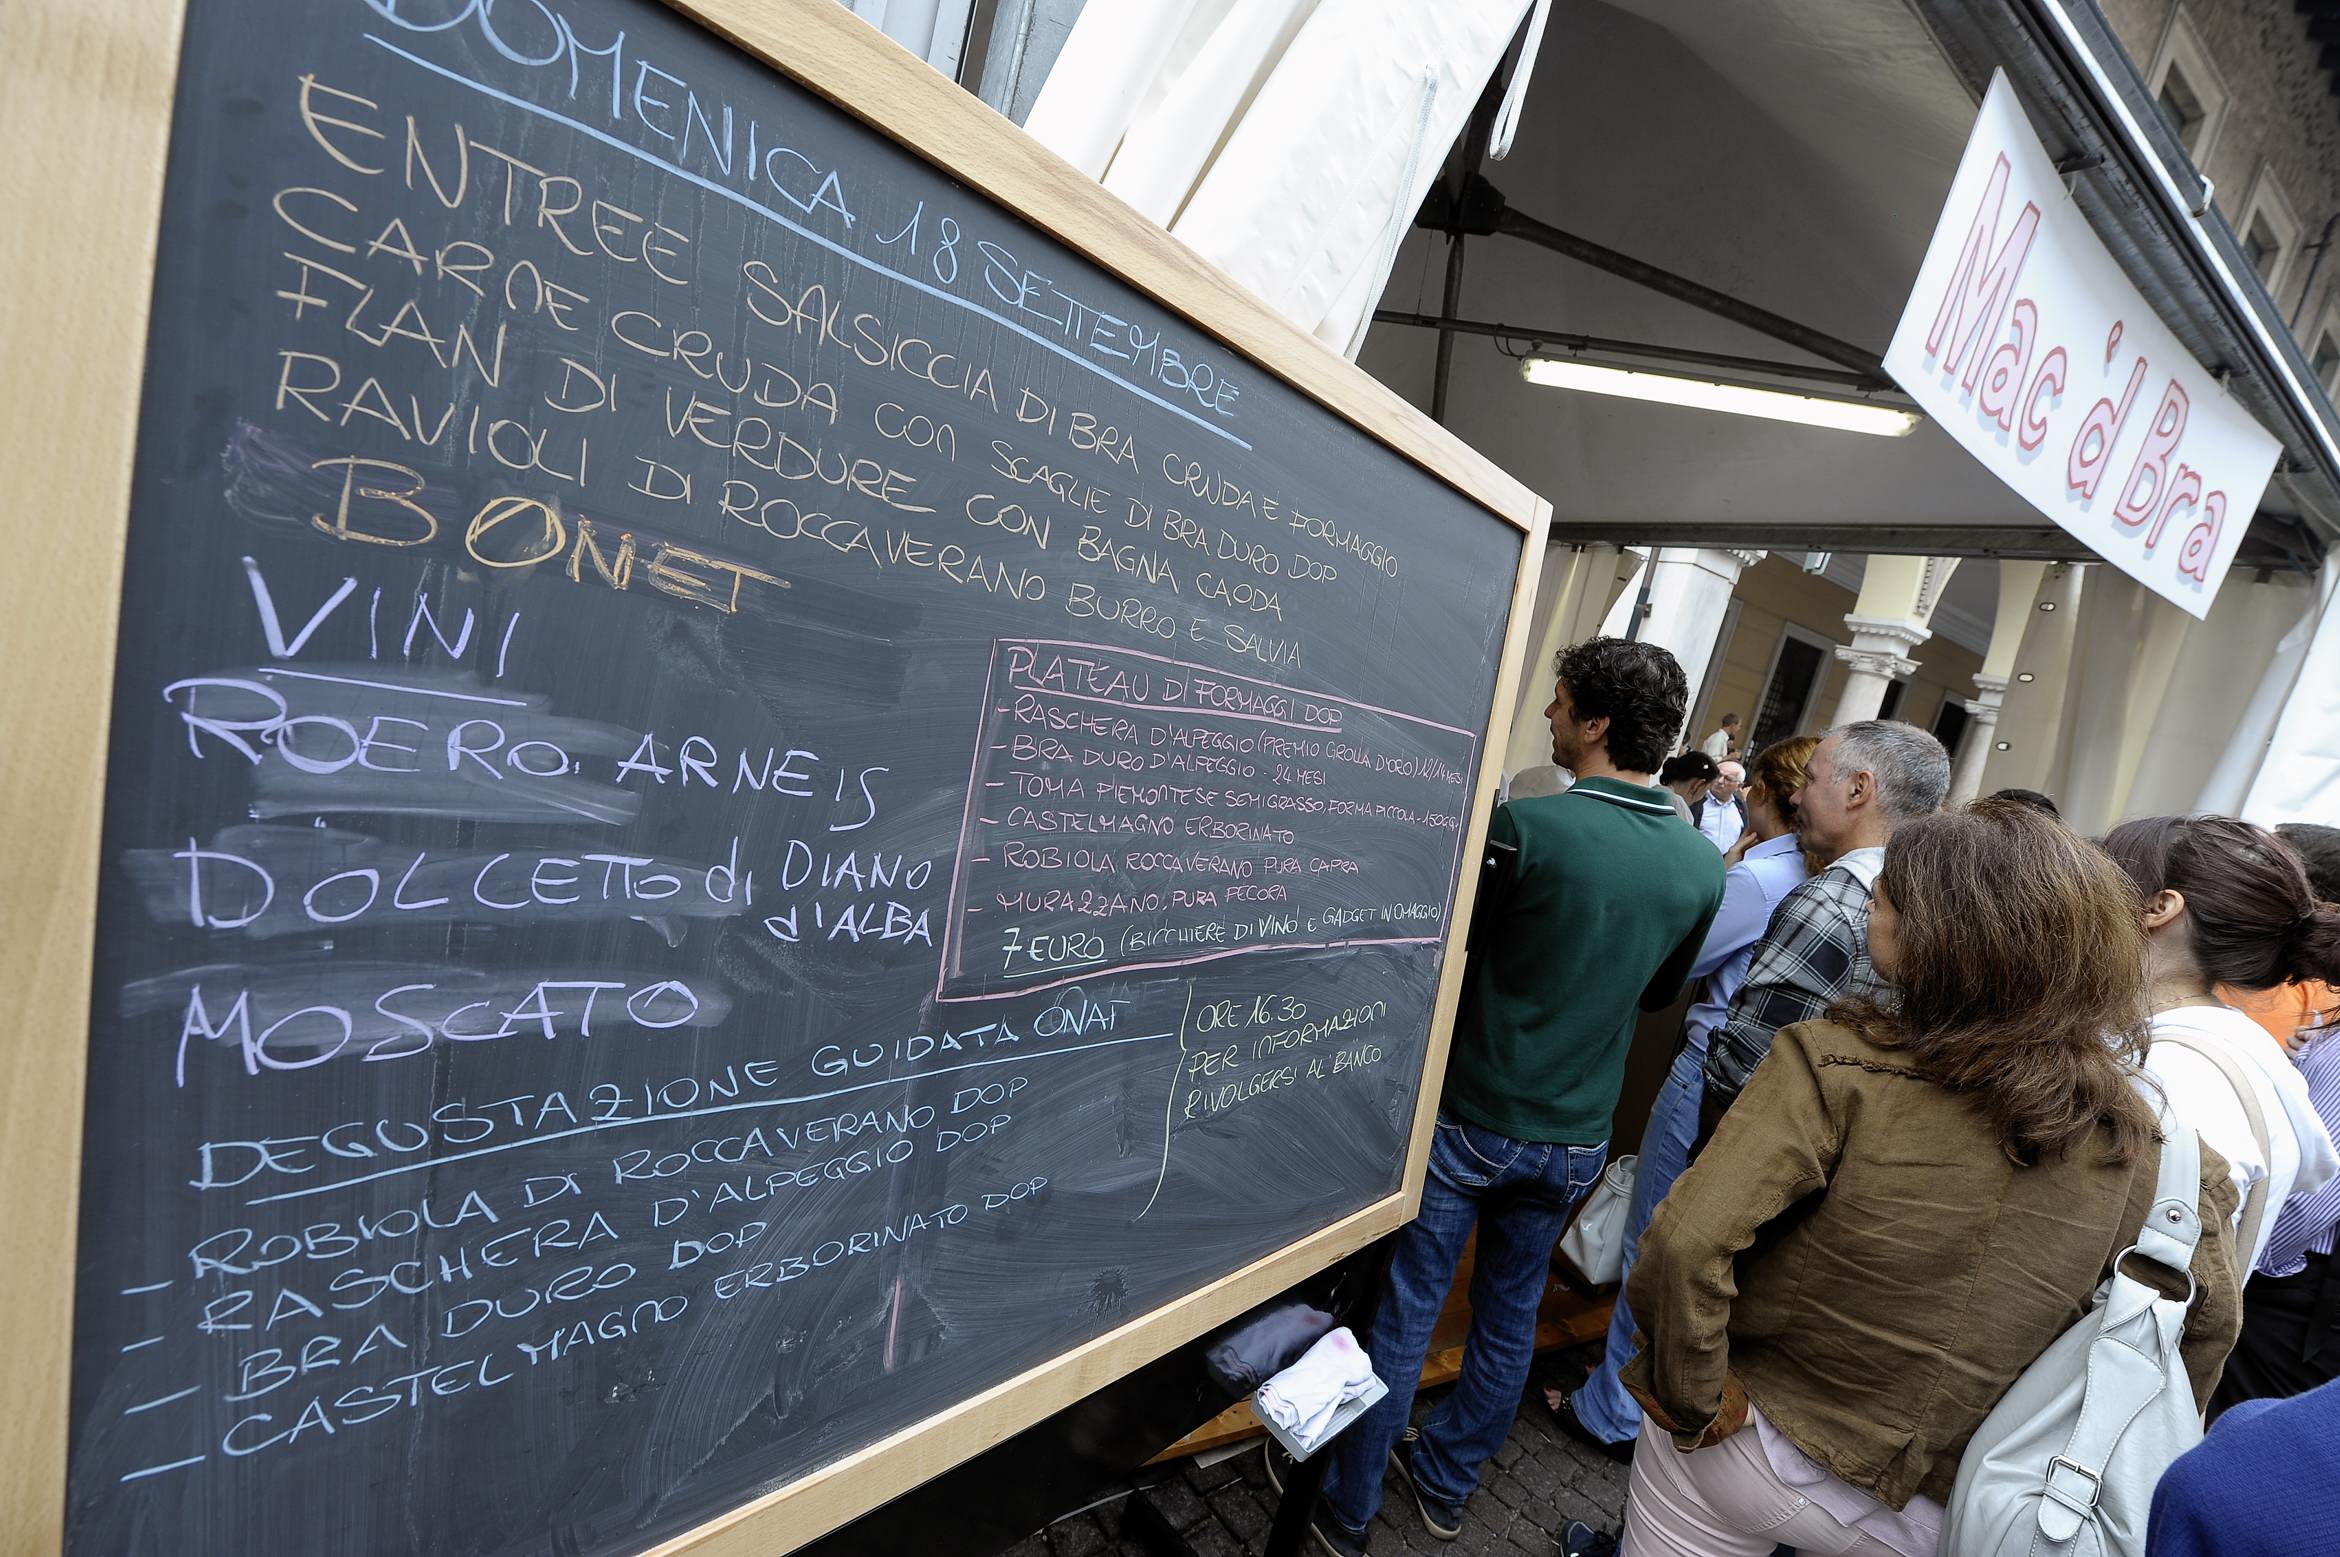 DOMENICA 18 SETTEMBRE
ENTREE SALSICCIA DI BRA CRUDA E FORMAGGIO
CARNE CRUDA CON SCAGLIE DI BRA DURO DOP
FLAN DI VERDURE CON BAGNA CAODA
RAVIOLI DI ROCCAVERANO BURRO E SALVIA
BONET
VINI
ROERO ARNEIS
DOLCETTO di DIANO
d'ALBA
MOSCATO
PLATEAU DI FORMAGGI DOP
- RASCHERA D'ALPEGGIO (PREMIO GROLLA D'ORO) 12/14 MESI
- BRA DURO D'ALPEGGIO - 24 MESI
- TOMA PIEMONTESE SEMIGRASSO, FORMA PICCOLA - 150GG
- CASTELMAGNO ERBORINATO
- ROBIOLA ROCCAVERANO PURA CAPRA
- MURAZZANO PURA PECORA
7 EURO (BICCHIERE DI VINO E GADGET IN OMAGGIO)
DEGUSTAZIONE GUIDATA ONAF
- ROBIOLA DI ROCCAVERANO DOP
- RASCHERA D'ALPEGGIO DOP
- BRA DURO DOP
- CASTELMAGNO ERBORINATO DOP
ORE 16.30
PER INFORMAZIONI
RIVOLGERSI AL BANCO
Mac 'd Bra